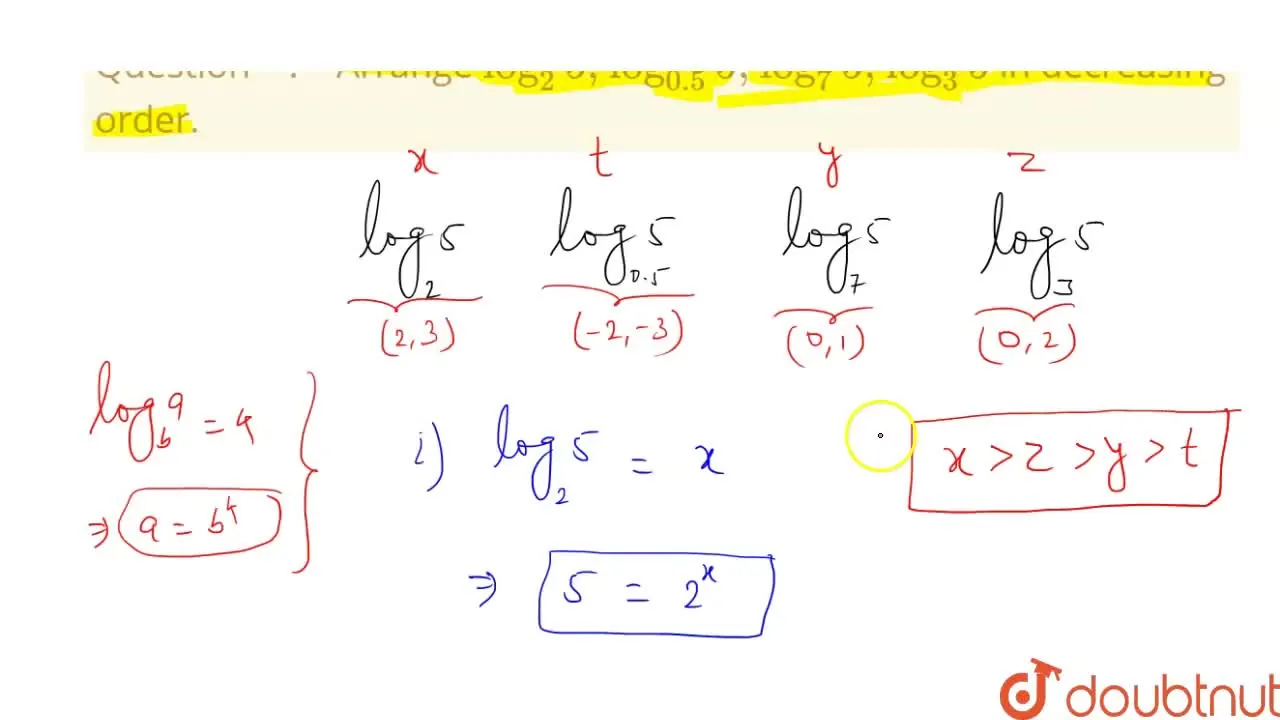 Question : Arrange log_2 5, log_0.5 5, log_7 5, log_3 5 in decreasing
order.
x t y z
log_2 5 log_0.5 5 log_7 5 log_3 5
(2,3) (-2,-3) (0,1) (0,2)
log_b a = 4
⇒ a = b^4
i) log_2 5 = x
x > z > y > t
⇒ 5 = 2^x
doubtnut